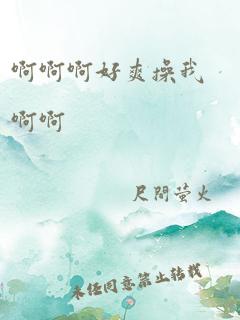 啊啊啊好爽操我
啊啊
尺间萤火
未经同意禁止转载